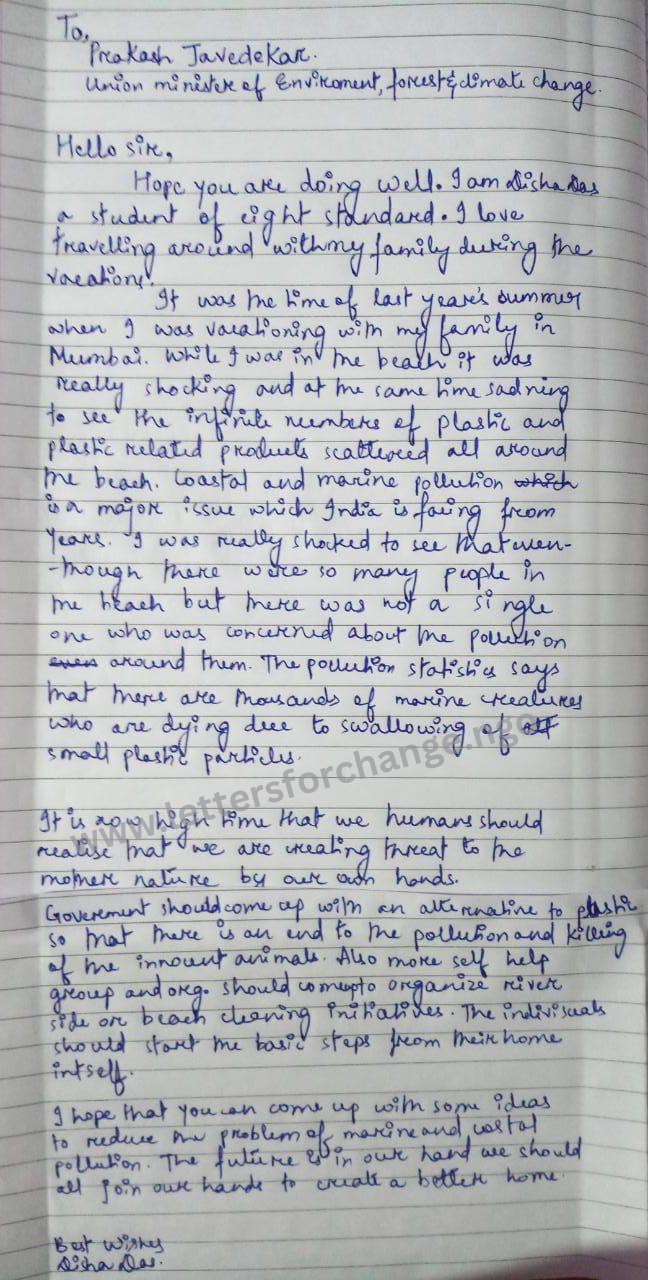 To,
Prakash Javedekar.
Union minister of Enviroment, forest & climate change.
Hello sir,
Hope you are doing well. I am Disha Das
a student of eight standard. I love
travelling around with my family during the
vacations.
It was the time of last year's summer
when I was vacationing with my family in
Mumbai. While I was in the beach it was
really shocking and at the same time sadning
to see the infinite numbers of plastic and
plastic related products scattered all around
the beach. Coastal and marine pollution which
is a major issue which India is facing from
years. I was really shocked to see that even-
-though there were so many people in
the beach but there was not a single
one who was concerned about the pollution
even around them. The pollution statistics says
that there are thousands of marine creatures
who are dying due to swallowing of
small plastic particles.
www.lettersforchange.ngo
It is now high time that we humans should
realise that we are creating threat to the
mother nature by our own hands.
Goverement should come up with an alternative to plastic
so that there is an end to the pollution and killing
of the innocent animals. Also more self help
group and org. should come up to organize river
side or beach cleaning initiatives. The indivisuals
should start the basic steps from their home
intself.
I hope that you can come up with some ideas
to reduce the problem of marine and costal
pollution. The future is in our hand we should
all join our hands to create a better home.
Best Wishes
Disha Das.